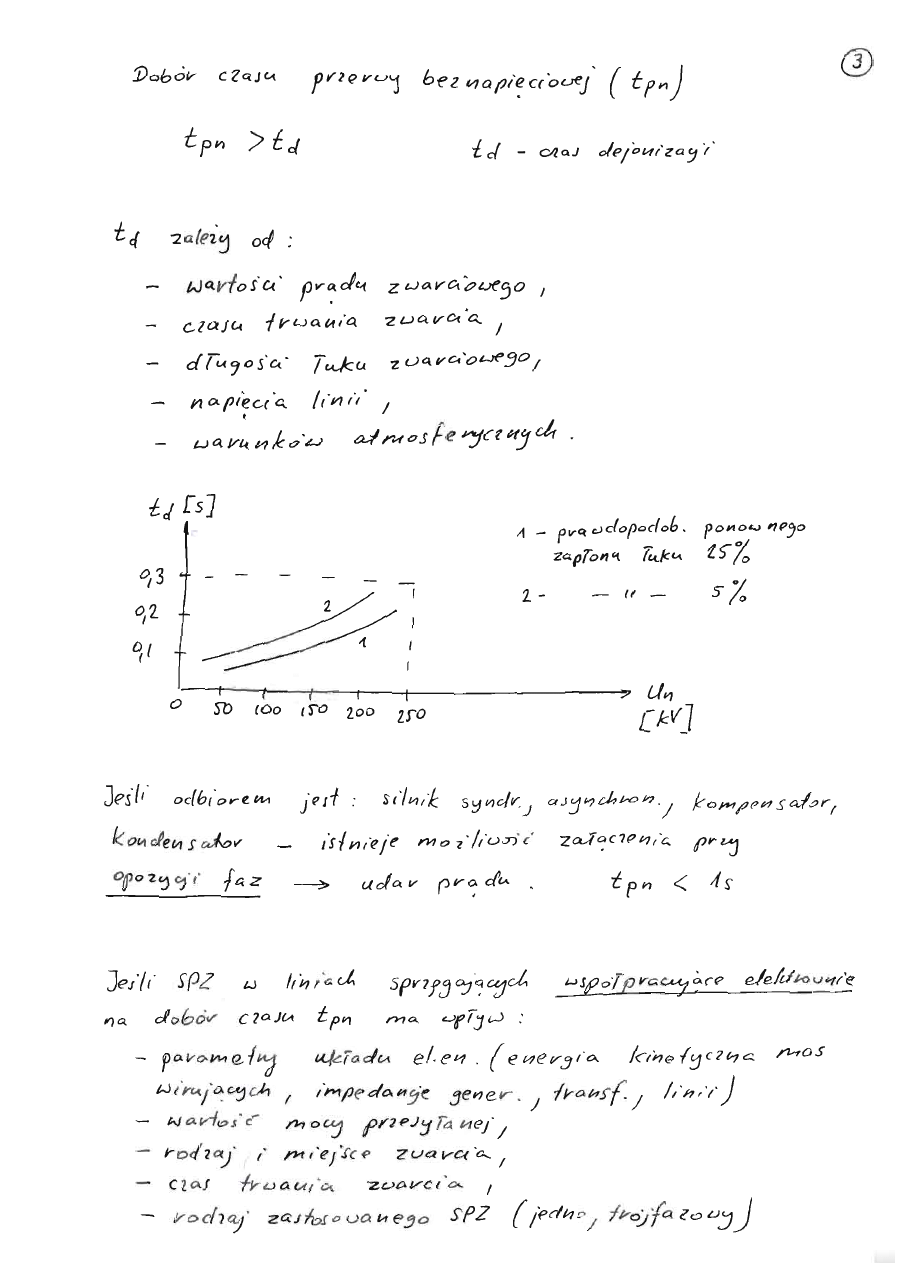 3
Dobór czasu przerwy beznapięciowej (tpn)
tpn > td
td - czas dejonizacji
td zależy od :
- wartości prądu zwarciowego,
- czasu trwania zwarcia,
- długości łuku zwarciowego,
- napięcia linii,
- warunków atmosferycznych.
td [s]
1 - prawdopodob. ponownego
zapłonu łuku 25%
0,3
2 - - " - 5%
0,2
2
0,1
1
0 50 100 150 200 250
Un
[kV]
Jeśli odbiorem jest : silnik syndr., asynchron., kompensator,
kondensator - istnieje możliwość załączenia przy
opozycji faz → udar prądu. tpn < 1s
Jeśli SPZ w liniach sprzęgających współpracujące elektrownie
na dobór czasu tpn ma wpływ :
- parametry układu el.en. (energia kinetyczna mas
wirujących, impedancje gener., transf., linii)
- wartość mocy przesyłanej,
- rodzaj i miejsce zwarcia,
- czas trwania zwarcia,
- rodzaj zastosowanego SPZ (jedno, trójfazowy)